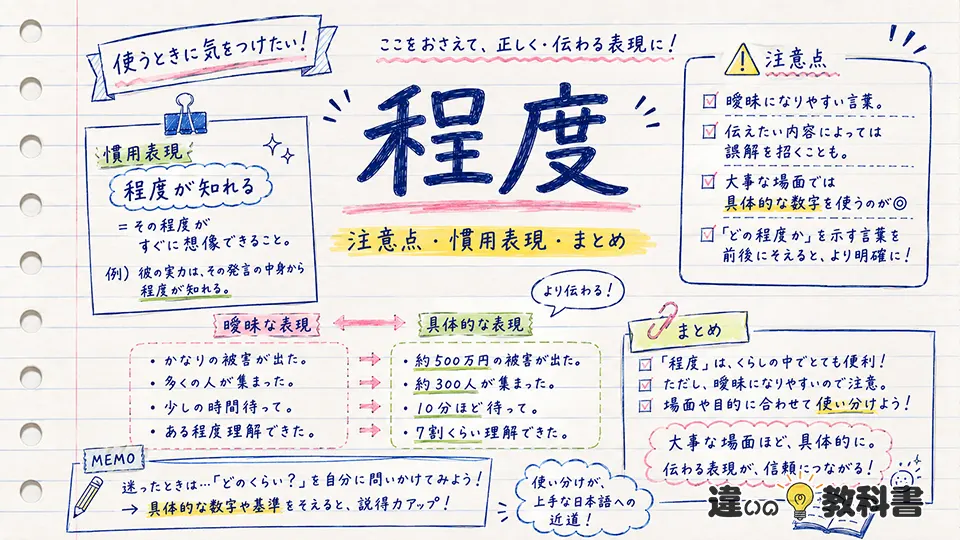 使うときに気をつけたい！
ここをおさえて、正しく・伝わる表現に！
程度
注意点・慣用表現・まとめ
慣用表現
程度が知れる
＝その程度が
すぐに想像できること。
例）彼の実力は、その発言の中身から
程度が知れる。
注意点
曖昧になりやすい言葉。
伝えたい内容によっては
誤解を招くことも。
大事な場面では
具体的な数字を使うのが◎
「どの程度か」を示す言葉を
前後にそえると、より明確に！
より伝わる！
曖昧な表現
具体的な表現
・かなりの被害が出た。
・約500万円の被害が出た。
・多くの人が集まった。
・約300人が集まった。
・少しの時間待って。
・10分ほど待って。
・ある程度理解できた。
・7割くらい理解できた。
まとめ
「程度」は、くらしの中でとても便利！
ただし、曖昧になりやすいので注意。
場面や目的に合わせて使い分けよう！
大事な場面ほど、具体的に。
伝わる表現が、信頼につながる！
MEMO
迷ったときは…「どのくらい？」を自分に問いかけてみよう！
→ 具体的な数字や基準をそえると、説得力アップ！
使い分けが、
上手な日本語への
近道！
違いの教科書